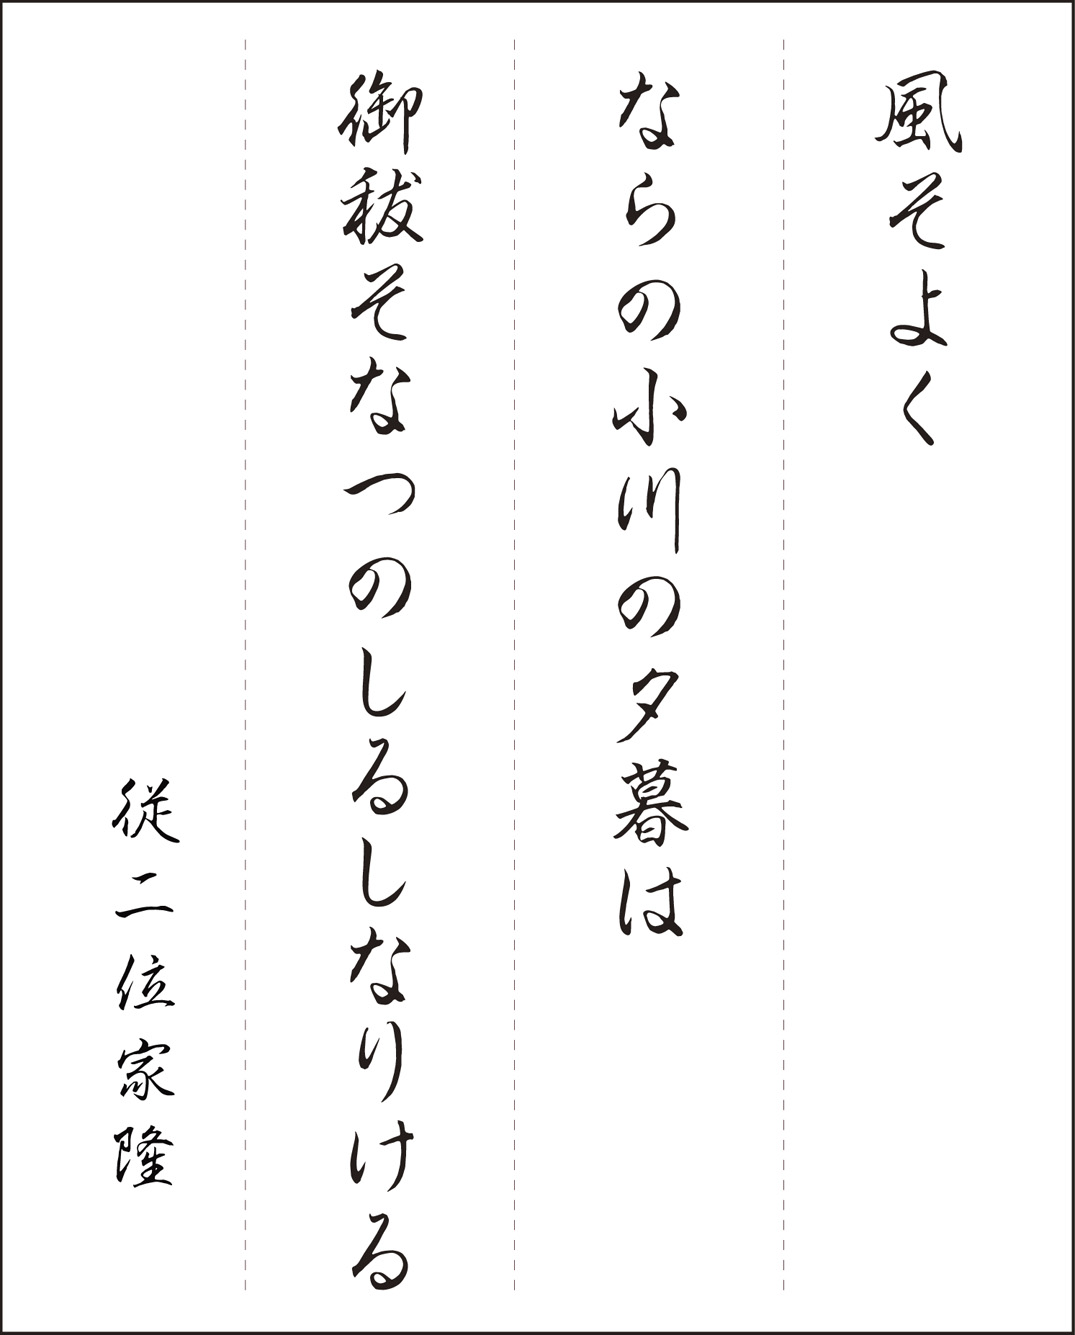 風そよく
ならの小川の夕暮は
御秡そなつのしるしなりける
従二位家隆